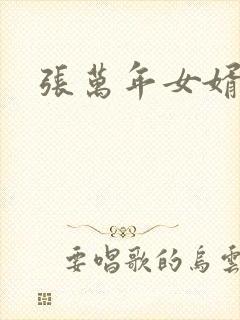 張萬年女婿
要唱歌的烏雲